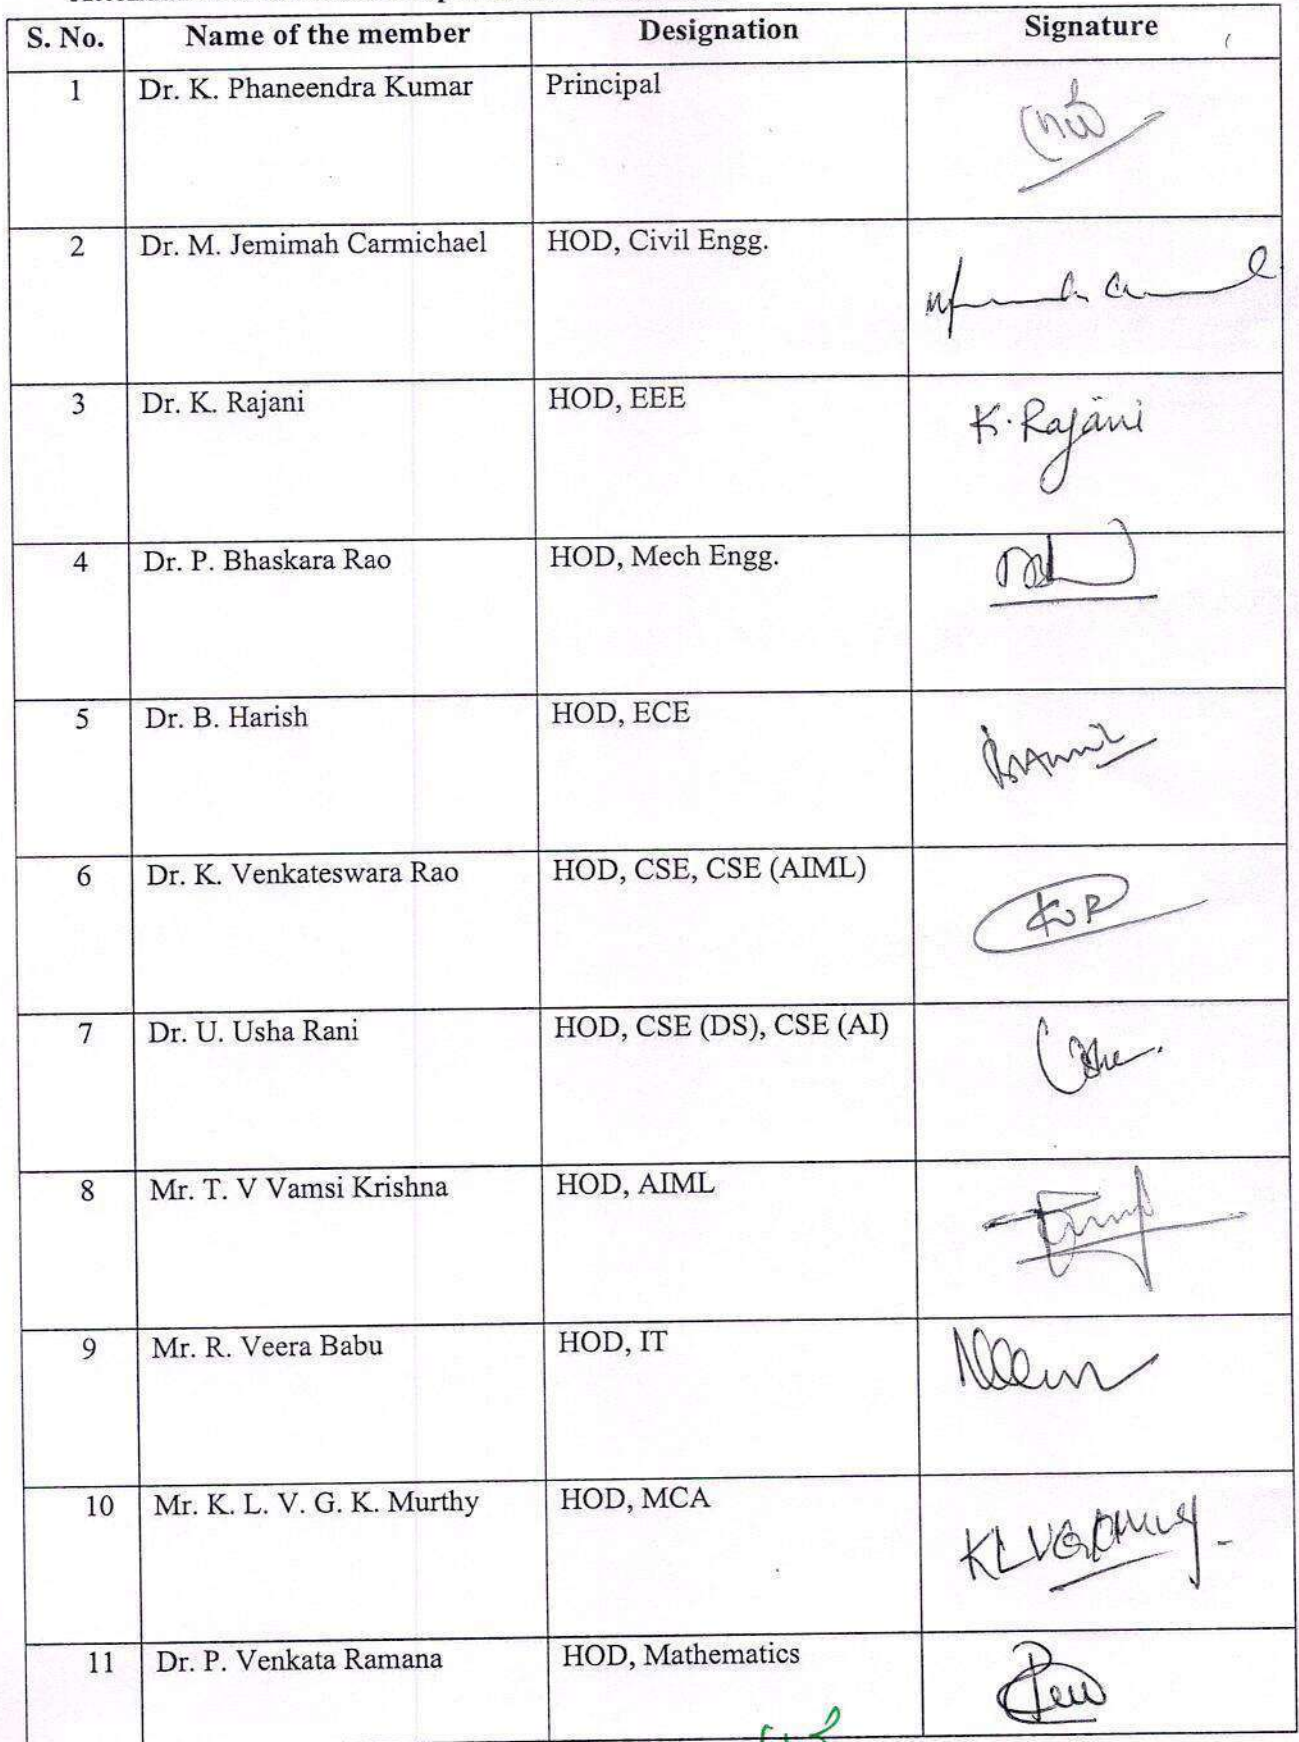 S. No. Name of the member Designation Signature
1 Dr. K. Phaneendra Kumar Principal
2 Dr. M. Jemimah Carmichael HOD, Civil Engg.
3 Dr. K. Rajani HOD, EEE K. Rajani
4 Dr. P. Bhaskara Rao HOD, Mech Engg.
5 Dr. B. Harish HOD, ECE
6 Dr. K. Venkateswara Rao HOD, CSE, CSE (AIML) KVR
7 Dr. U. Usha Rani HOD, CSE (DS), CSE (AI) Usha
8 Mr. T. V Vamsi Krishna HOD, AIML
9 Mr. R. Veera Babu HOD, IT
10 Mr. K. L. V. G. K. Murthy HOD, MCA
11 Dr. P. Venkata Ramana HOD, Mathematics